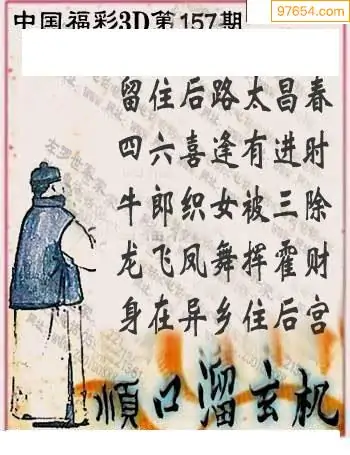 97654.com
中国福彩3D第157期
留住后路太昌春
四六喜逢有进时
牛郎织女被三除
龙飞凤舞挥霍财
身在异乡住后宫
顺口溜玄机